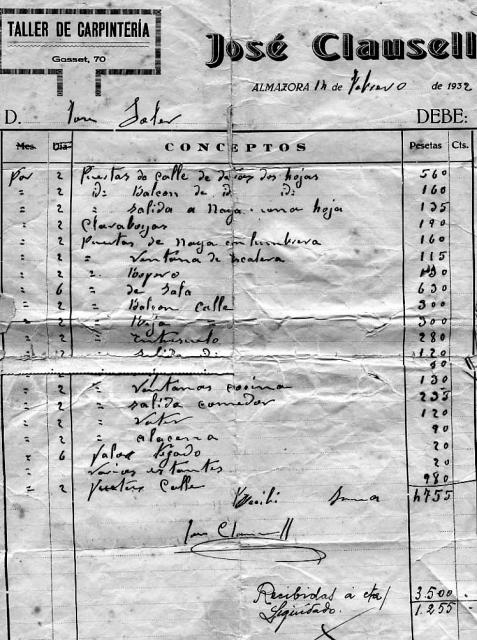 TALLER DE CARPINTERÍA
Gasset, 70
José Clausell
ALMAZORA 14 de Febrero de 1932
D. Soler DEBE:
Mes. Día CONCEPTOS Pesetas Cts.
Por 2 Puertas de calle de dos hojas 560
" 2 id: Balcon de id. id: 160
" 2 " salida a Naya una hoja 135
" 2 Claraboyas 190
" 2 Puertas de Naya con lumbrera 160
" 2 " Ventana de escalera 115
" 2 "
" 6 " de sala 630
" 2 " Balcon calle 300
" 2 " Reja 300
" 2 " entresuelo 280
" 2 " salida 120
80
" 2 " Ventanas cosina 130
" 2 " salida comedor 235
" 2 " Vater 120
" 2 " alacena 90
" 6 20
" Varios estantes 20
" 2 Puertas Calle 980
Recibi Suma 4755
Clausell
Recibidas á cta/ 3.500.
Liquidado. 1.255.